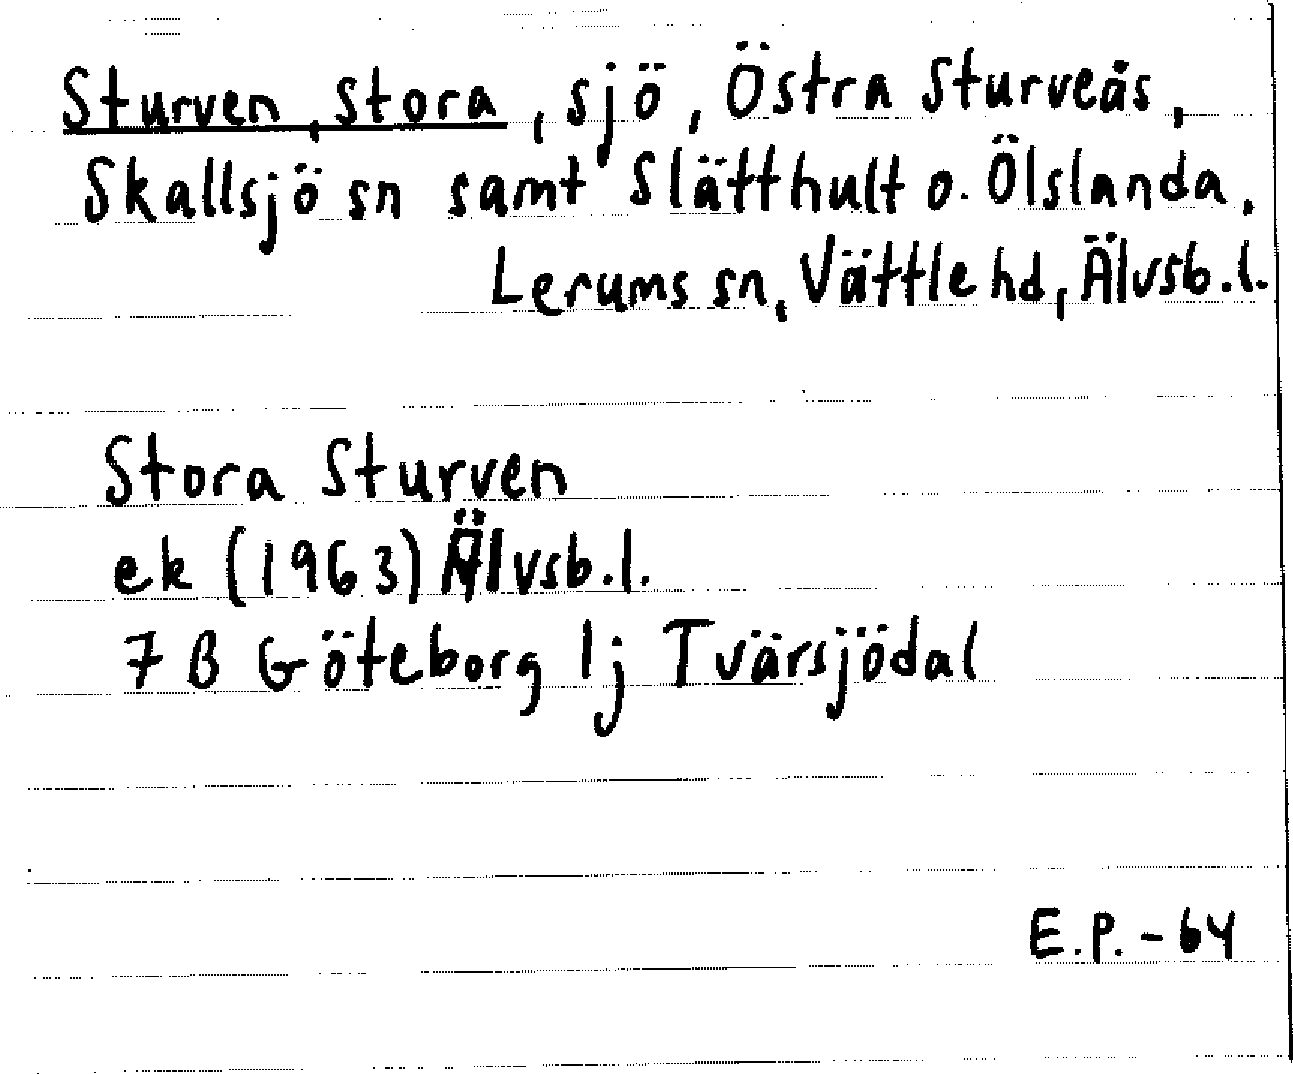 Sturven, stora, sjö, Östra Sturveås,
Skallsjö sn samt Slätthult o. Ölslanda,
Lerums sn, Vättle hd, Älvsb.l.
Stora Sturven
ek (1963) Älvsb.l.
7 B Göteborg 1j Tvärsjödal
E.P. - 64